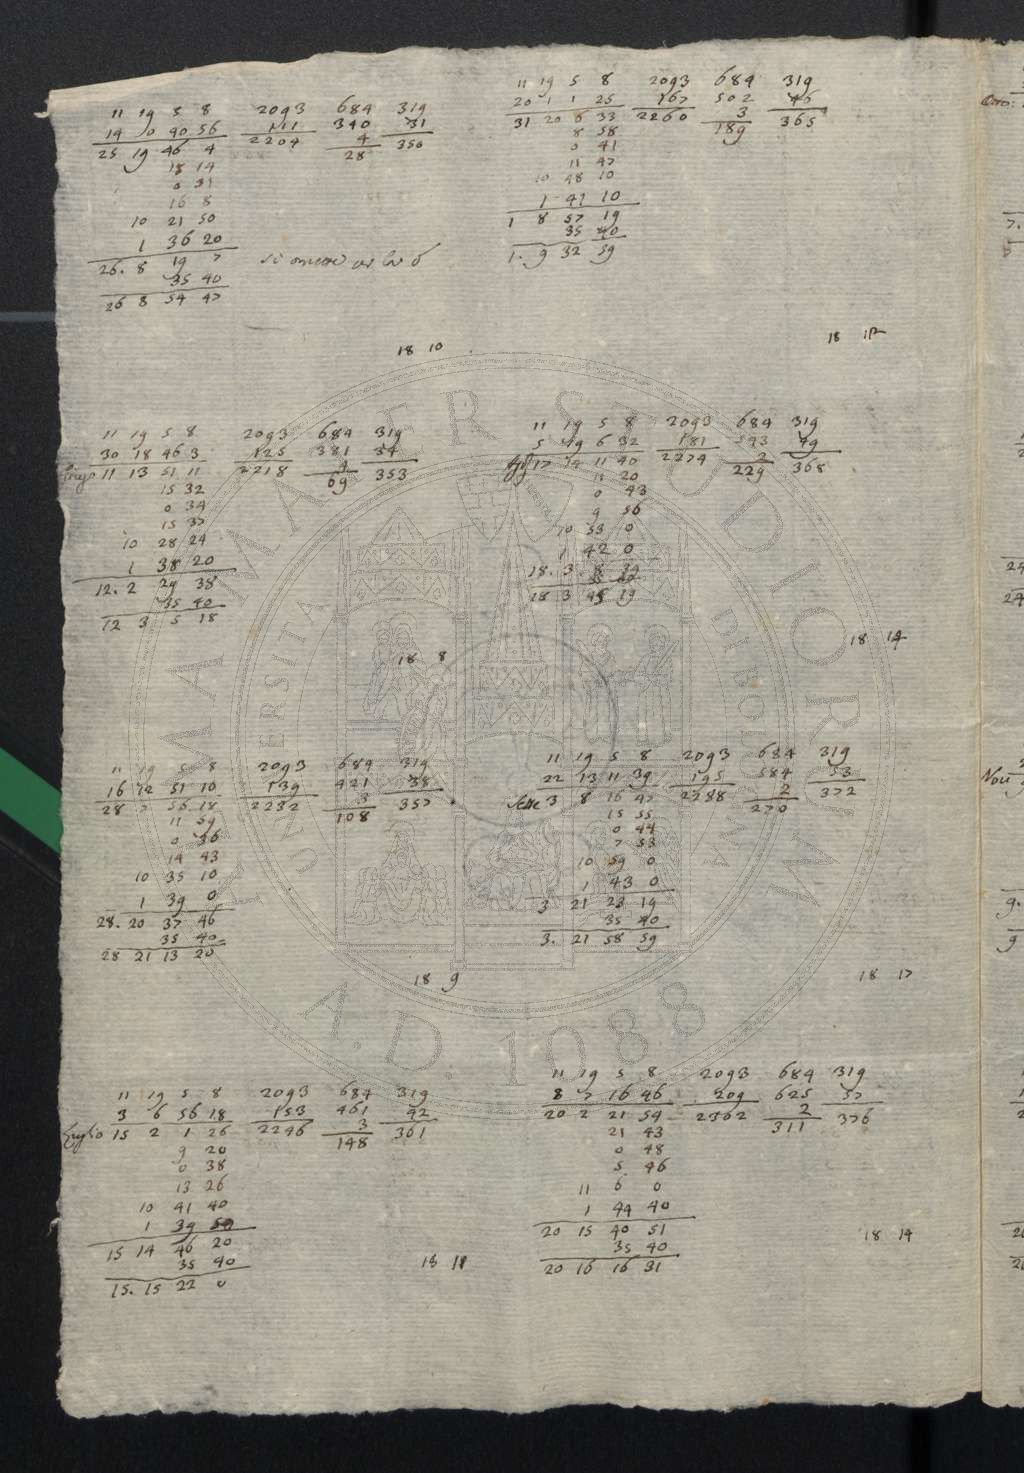 11 19 5 8 2093 684 319
14 0 40 56 111 340 31
25 19 46 4 2204 4 350
28
18 14
0 31
16 8
10 21 50
1 36 20
26. 8 19 7
35 40
26 8 54 47
18 10
11 19 5 8 2093 684 319
20 1 1 25 167 502 46
31 20 6 33 2260 3 365
189
8 58
0 41
11 47
10 48 10
1 41 10
1 8 57 19
35 40
1. 9 32 59
18
11 19 5 8 2093 684 319
30 18 46 3 125 381 34
11 13 51 11 2218 3 353
69
15 32
0 34
15 37
10 28 24
1 38 20
12. 2 29 38
35 40
12 3 5 18
18 8
11 19 5 8 2093 684 319
5 19 6 32 181 543 49
17 14 11 40 2274 2 368
229
11 20
0 43
9 56
10 53 0
1 42 0
18. 3. 8 39
35 40
18 3 45 19
18 14
11 19 5 8 2093 684 319
16 12 51 10 139 421 38
28 7 56 18 2232 3 357
108
11 59
0 36
14 43
10 35 10
1 39 0
28. 20 37 46
35 40
28 21 13 20
18 9
11 19 5 8 2093 684 319
22 13 11 39 195 584 53
3 8 16 47 2288 2 372
270
15 55
0 44
7 53
10 59 0
1 43 0
3 21 23 19
35 40
3. 21 58 59
18 17
11 19 5 8 2093 684 319
3 6 56 18 153 461 42
15 2 1 26 2246 3 361
148
9 20
0 38
13 26
10 41 40
1 39 50
15 14 46 20
35 40
15. 15 22 0
18 11
11 19 5 8 2093 684 319
8 7 16 46 209 625 57
20 2 21 54 2302 2 376
311
21 43
0 48
5 46
11 6 0
1 44 40
20 15 40 51
35 40
20 16 16 31
18 14
ALMA MATER STUDIORUM
A.D. 1088